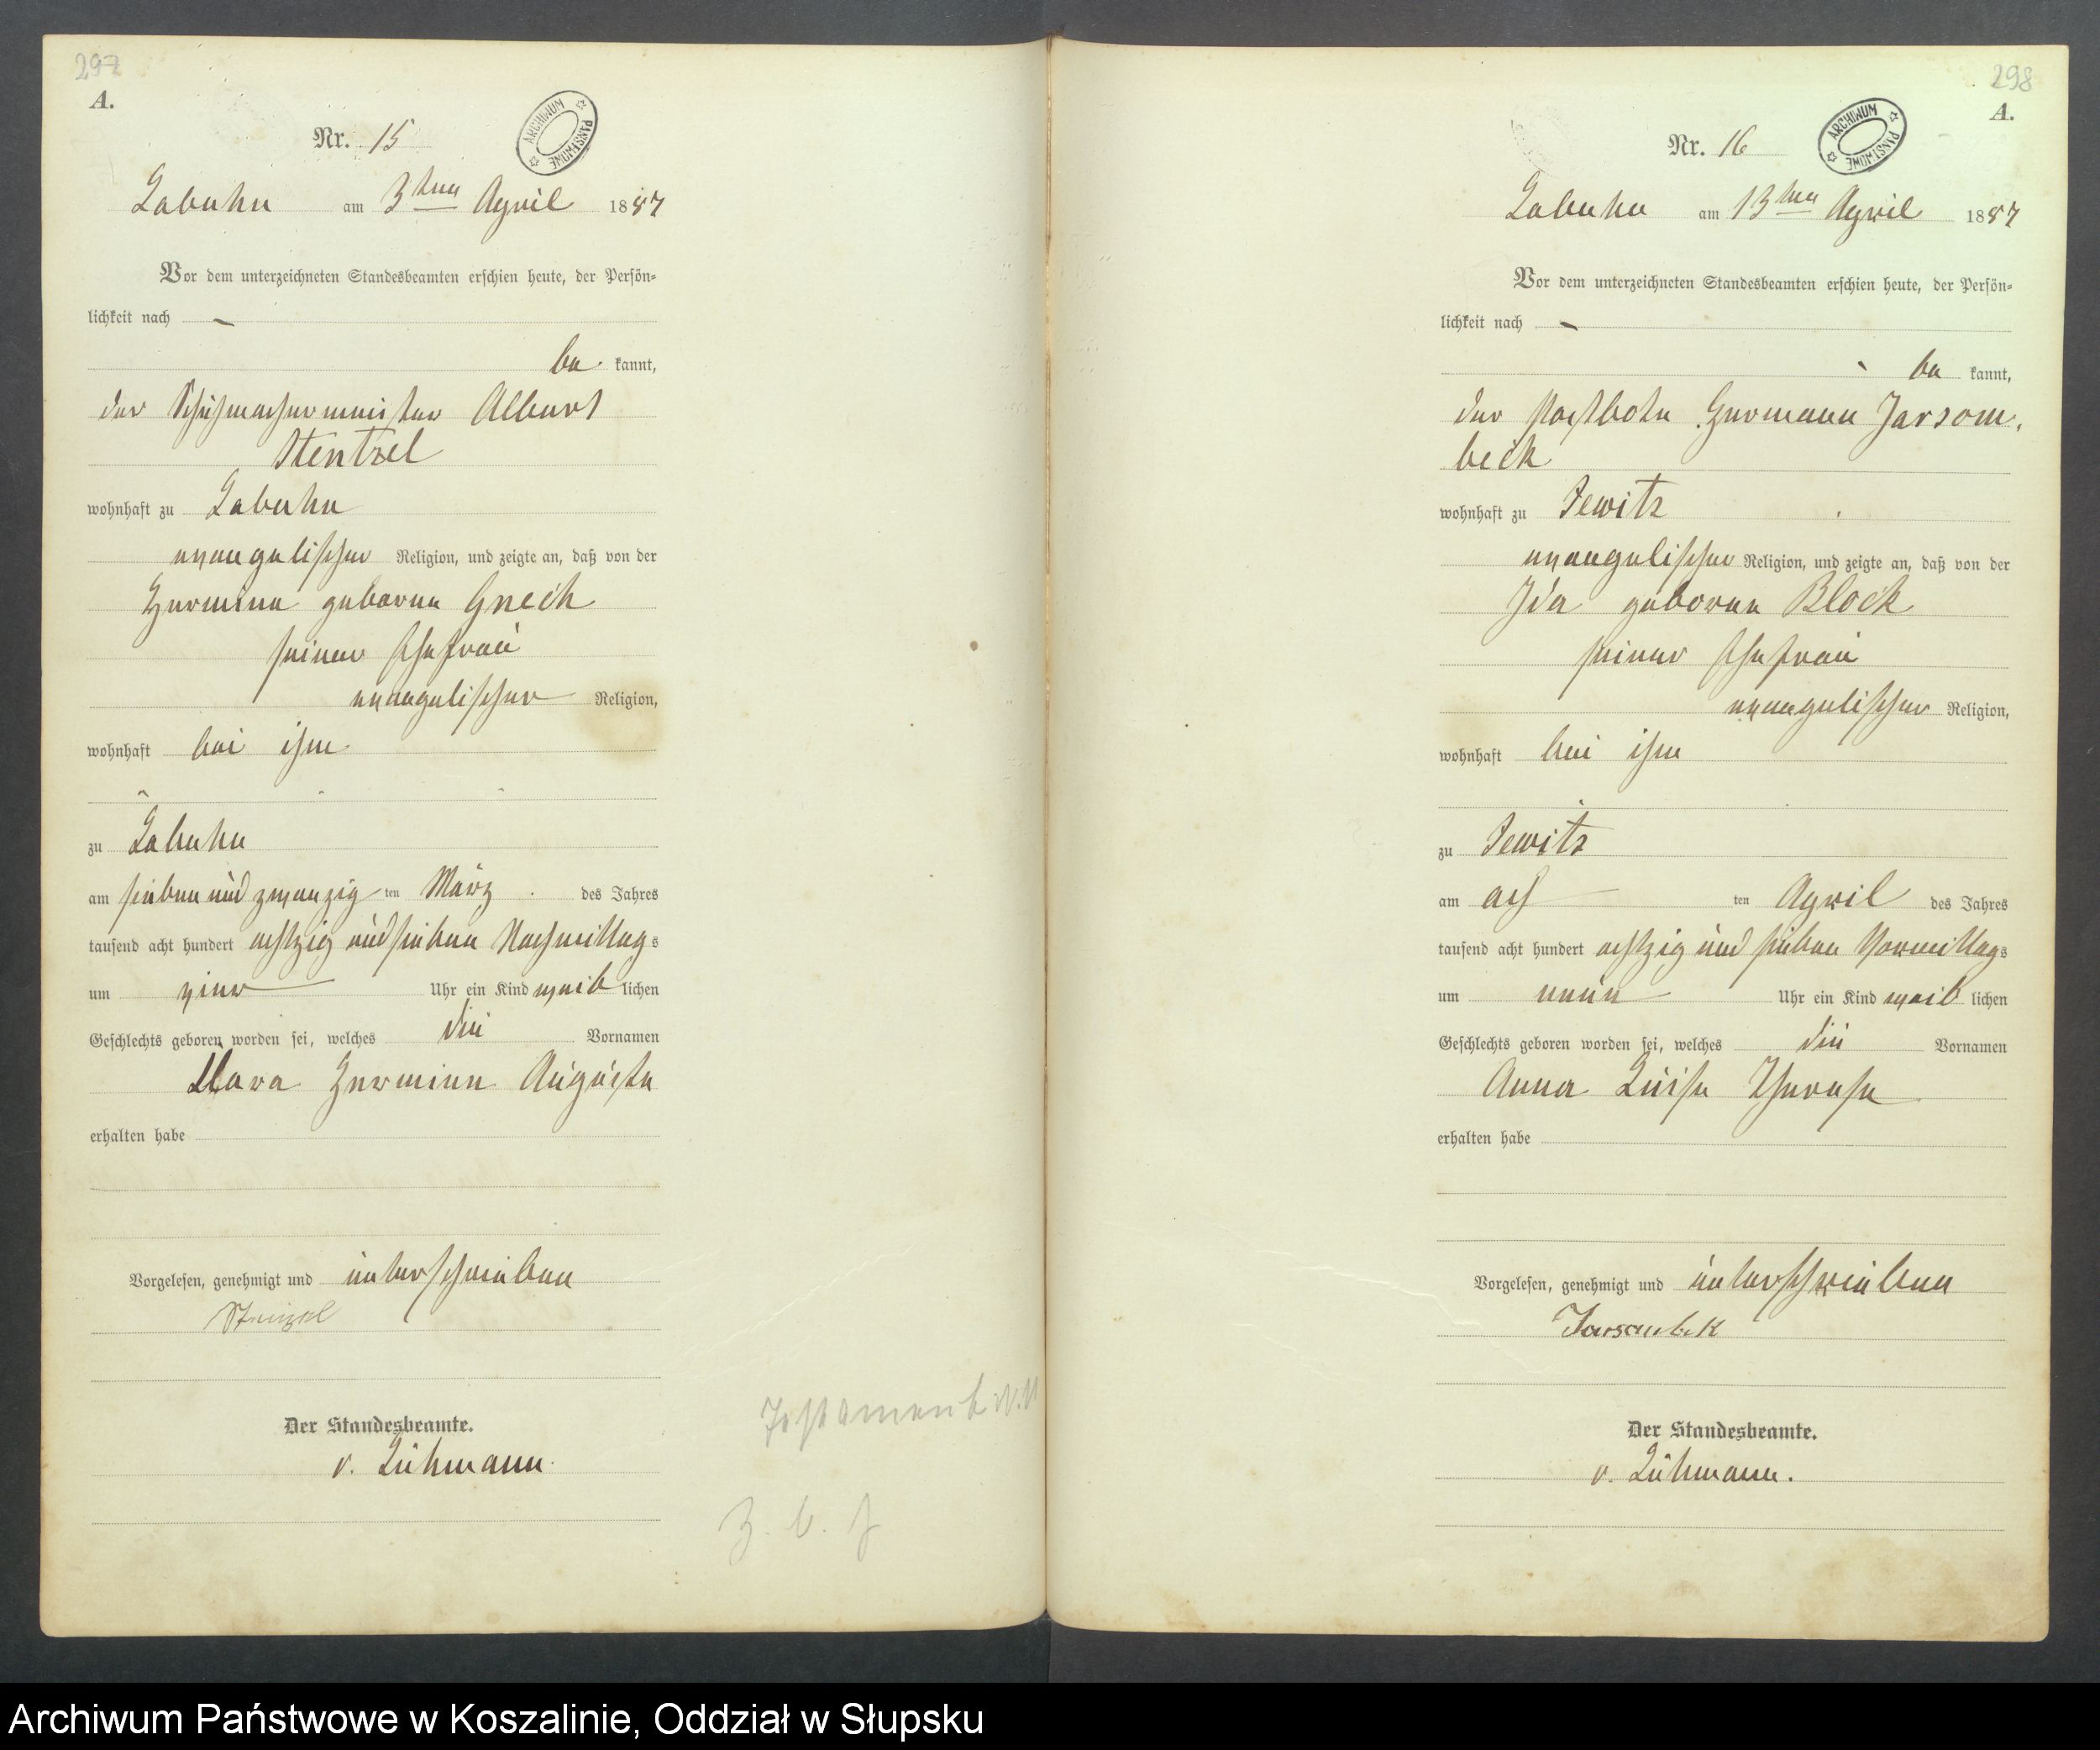 297
A.
Nr. 15
ARCHIWUM PAŃSTWOWE
Labuhn am 3ten April 1887
Vor dem unterzeichneten Standesbeamten erschien heute, der Persön-
lichkeit nach –
be kannt,
der Schuhmachermeister Albert
Stentzel
wohnhaft zu Labuhn
evangelischer Religion, und zeigte an, daß von der
Hermine geborne Gnech
seiner Ehefrau
evangelischer Religion,
wohnhaft bei ihm
zu Labuhn
am sieben und zwanzig ten März des Jahres
tausend acht hundert achtzig und sieben Nachmittag s
um vier Uhr ein Kind weib lichen
Geschlechts geboren worden sei, welches die Vornamen
Clara Hermine Auguste
erhalten habe
Vorgelesen, genehmigt und unterschrieben
Stenzel
Der Standesbeamte.
v. Lühmann.
Testament
Z. b. J
298
A.
Nr. 16
ARCHIWUM PAŃSTWOWE
Labuhn am 13ten April 1887
Vor dem unterzeichneten Standesbeamten erschien heute, der Persön-
lichkeit nach –
be kannt,
der Postbote Hermann Jarsom-
beck
wohnhaft zu Jewitz
evangelischer Religion, und zeigte an, daß von der
Ida geborne Block
seiner Ehefrau
evangelischer Religion,
wohnhaft bei ihm
zu Jewitz
am ach ten April des Jahres
tausend acht hundert achtzig und sieben Vormittag s
um neun Uhr ein Kind weib lichen
Geschlechts geboren worden sei, welches die Vornamen
Anna Luise Therese
erhalten habe
Vorgelesen, genehmigt und unterschrieben
Jarsombek
Der Standesbeamte.
v. Lühmann.
Archiwum Państwowe w Koszalinie, Oddział w Słupsku